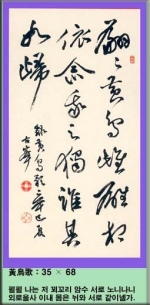 翩〻黃鳥雌雄相
依念我之獨誰其
與歸
黃鳥歌 辛巳夏
黃鳥歌 : 35 × 68
펄펄 나는 저 꾀꼬리 암수 서로 노니나니
외로울사 이내 몸은 뉘와 서로 같이넬가.